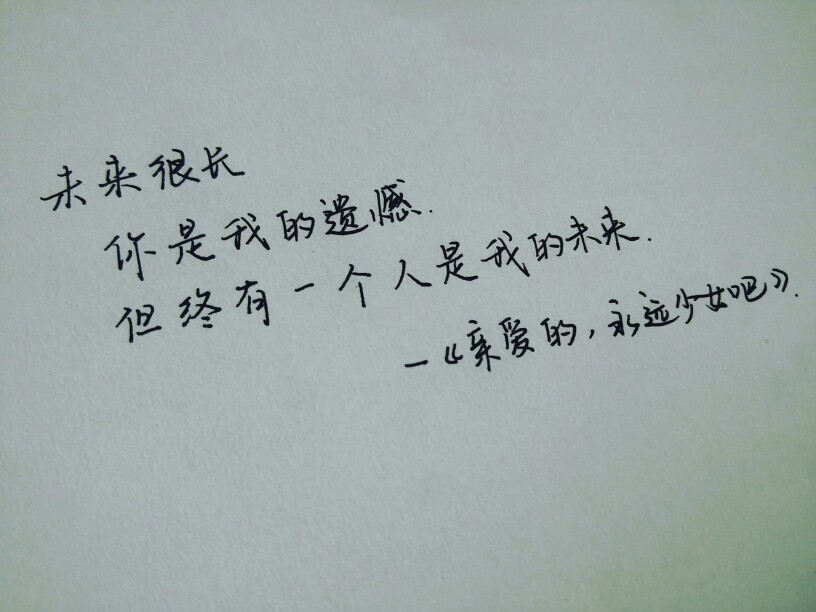 未来很长
你是我的遗憾.
但终有一个人是我的未来.
—《亲爱的,永远少女吧》.